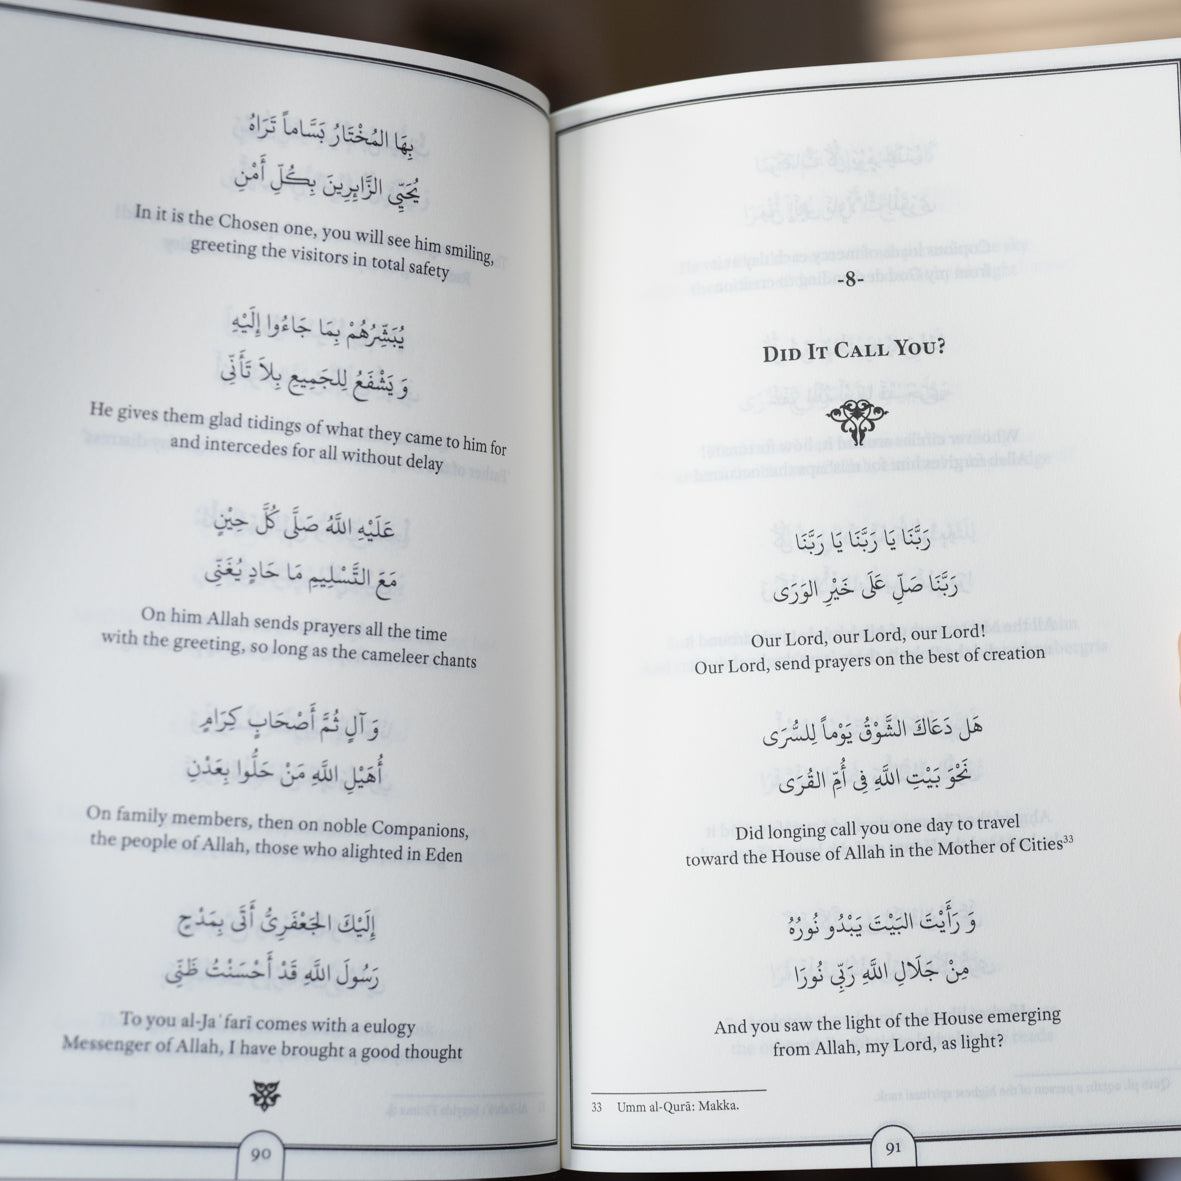 بِهَا المُخْتَارُ بَسَّاماً تَرَاهُ
يُحَيِّي الزَّايِرِينَ بِكُلِّ أَمْنِ
In it is the Chosen one, you will see him smiling,
greeting the visitors in total safety
يُبَشِّرُهُمْ بِمَا جَاءُوا إِلَيْهِ
وَ يَشْفَعُ لِلجَمِيعِ بِلاَ تَأَنِّي
He gives them glad tidings of what they came to him for
and intercedes for all without delay
عَلَيْهِ اللَّهُ صَلَّى كُلَّ حِيْنٍ
مَعَ التَّسْلِيمِ مَا حَادٍ يُغَنِّى
On him Allah sends prayers all the time
with the greeting, so long as the cameleer chants
وَ آلٍ ثُمَّ أَصْحَابٍ كِرَامٍ
أُهَيْلِ اللَّهِ مَنْ حَلُّوا بِعَدْنِ
On family members, then on noble Companions,
the people of Allah, those who alighted in Eden
إِلَيْكَ الجَعْفَرِىُّ أَتَى بِمَدْحٍ
رَسُولَ اللَّهِ قَدْ أَحْسَنْتُ ظَنِّى
To you al-Jaʿfarī comes with a eulogy
Messenger of Allah, I have brought a good thought
90
-8-
Did It Call You?
رَبَّنَا يَا رَبَّنَا يَا رَبَّنَا
رَبَّنَا صَلِّ عَلَى خَيْرِ الوَرَى
Our Lord, our Lord, our Lord!
Our Lord, send prayers on the best of creation
هَل دَعَاكَ الشَّوْقُ يَوْماً لِلسُّرَى
نَحْوَ بَيْتِ اللَّهِ فِى أُمِّ القُرَى
Did longing call you one day to travel
toward the House of Allah in the Mother of Cities³³
وَ رَأَيْتَ البَيْتَ يَبْدُو نُورُهُ
مِنْ جَلَالِ اللَّهِ رَبِّى نُورَا
And you saw the light of the House emerging
from Allah, my Lord, as light?
33 Umm al-Qurā: Makka.
91